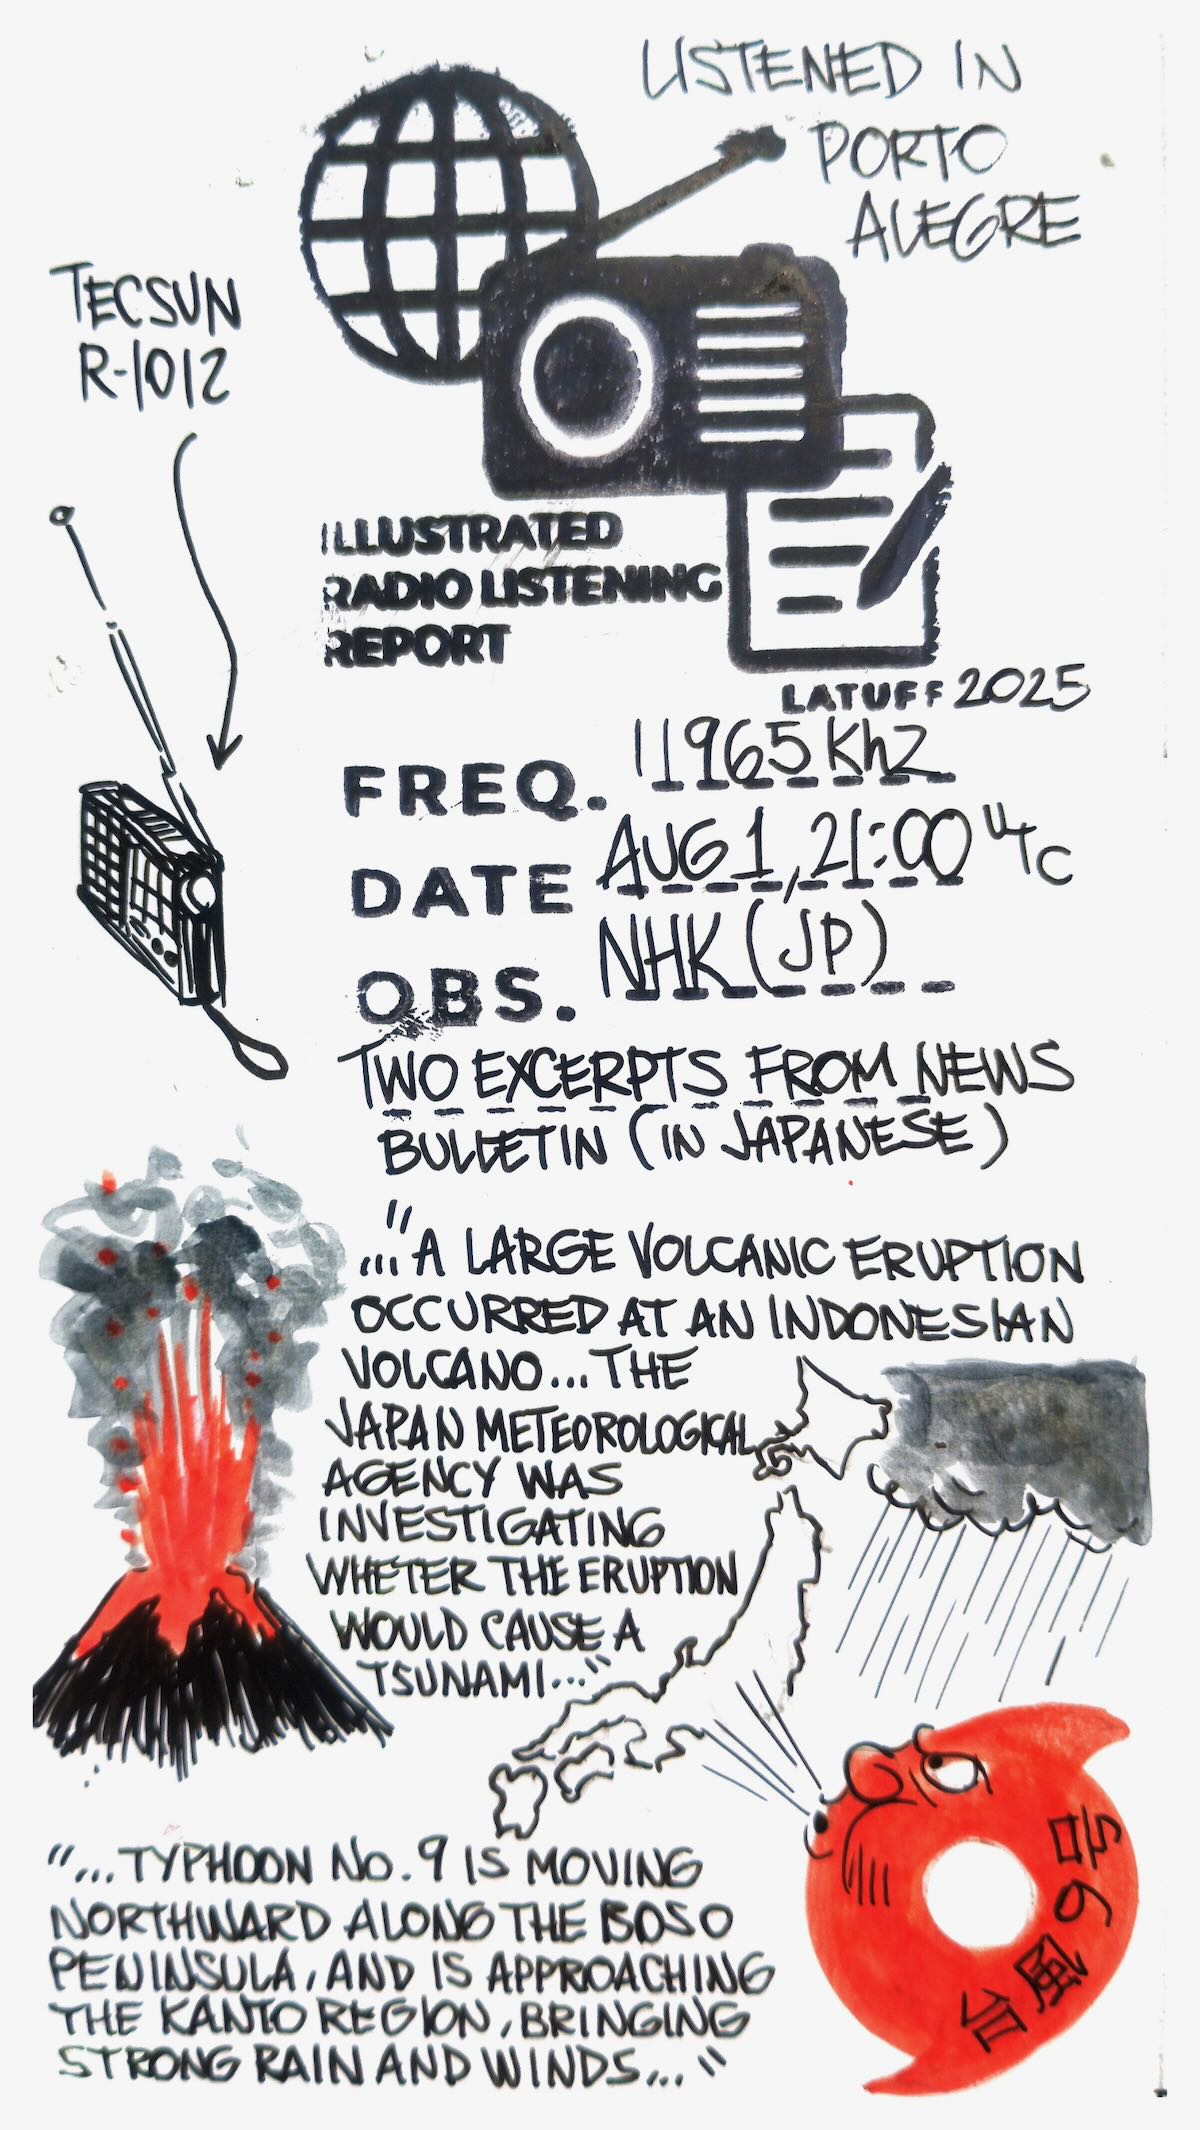 LISTENED IN
PORTO
ALEGRE
TECSUN
R-1012
ILLUSTRATED
RADIO LISTENING
REPORT
LATUFF 2025
FREQ. 11965 KhZ
DATE AUG 1, 21:00 UTC
OBS. NHK (JP)
TWO EXCERPTS FROM NEWS
BULLETIN (IN JAPANESE)
"...A LARGE VOLCANIC ERUPTION
OCCURRED AT AN INDONESIAN
VOLCANO... THE
JAPAN METEOROLOGICAL
AGENCY WAS
INVESTIGATING
WHETER THE ERUPTION
WOULD CAUSE A
TSUNAMI..."
"...TYPHOON No. 9 IS MOVING
NORTHWARD ALONG THE BOSO
PENINSULA, AND IS APPROACHING
THE KANTO REGION, BRINGING
STRONG RAIN AND WINDS..."
台風9号